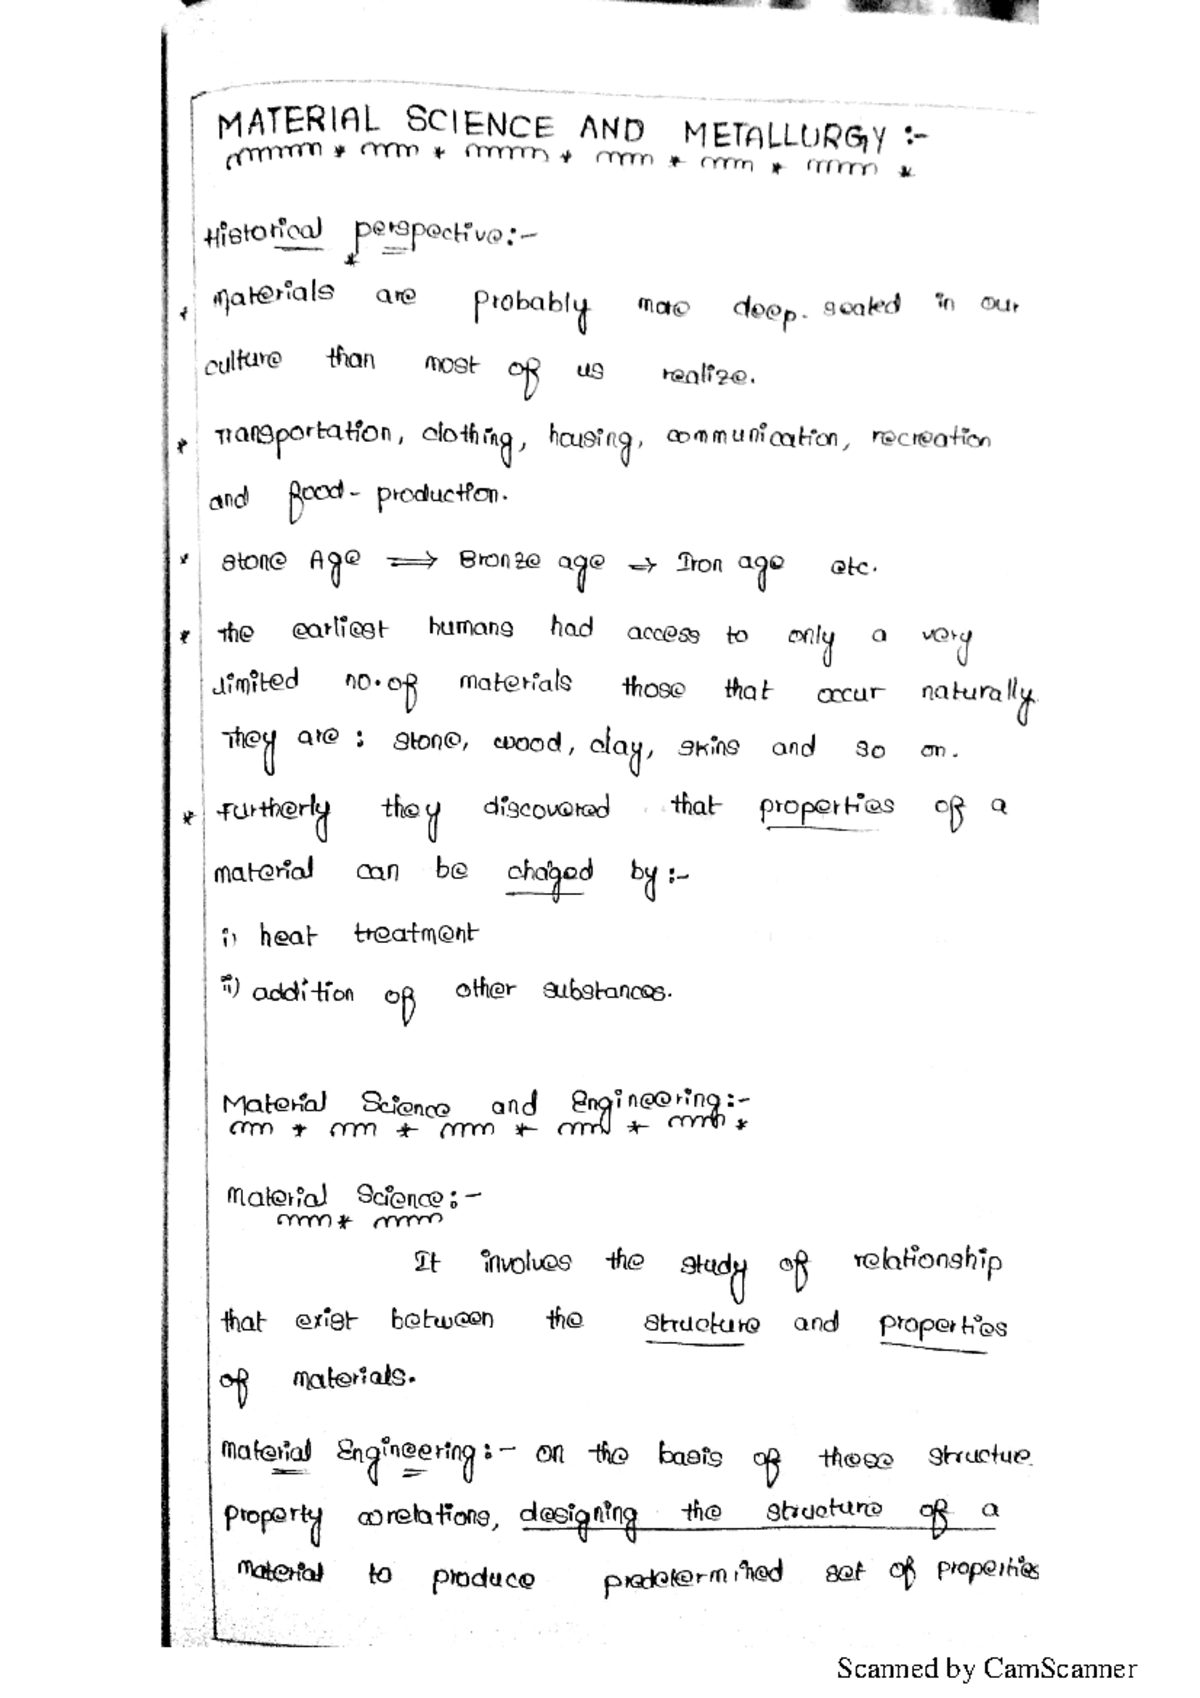 MATERIAL SCIENCE AND METALLURGY :-
Historical perspective:-
* Materials are probably more deep. seated in our
culture than most of us realize.
* Transportation, clothing, housing, communication, recreation
and food - production.
* Stone Age ⟹ Bronze age → Iron age etc.
* The earliest humans had access to only a very
limited no. of materials those that occur naturally.
They are : stone, wood, clay, skins and so on.
* Furtherly they discovered that properties of a
material can be chaged by :-
i) heat treatment
ii) addition of other substances.
Material Science and Engineering:-
Material Science:-
It involves the study of relationship
that exist between the structure and properties
of materials.
Material Engineering:- on the basis of these structue
property correlations, designing the structure of a
material to produce predetermined set of properties
Scanned by CamScanner